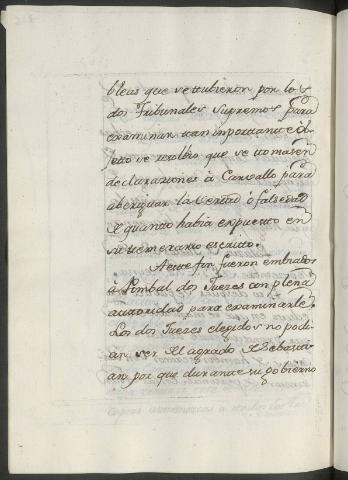 bleas que se tubieron por los
dos Tribunales supremos para
examinar tan inportante ob-
jetto se resolbio que se tomasen
declaraziones à Carvallo para
aberiguar la verdad ó falsedad
de quanto habia expuesto en
su temerario escritto.
A este fin fueron embiados
à Pombal dos Juezes con plena
autoridad para examinarle.
Los dos Juezes elegidos no podi-
an ser del agrado de Sebasti-
an, por que durante su gobierno